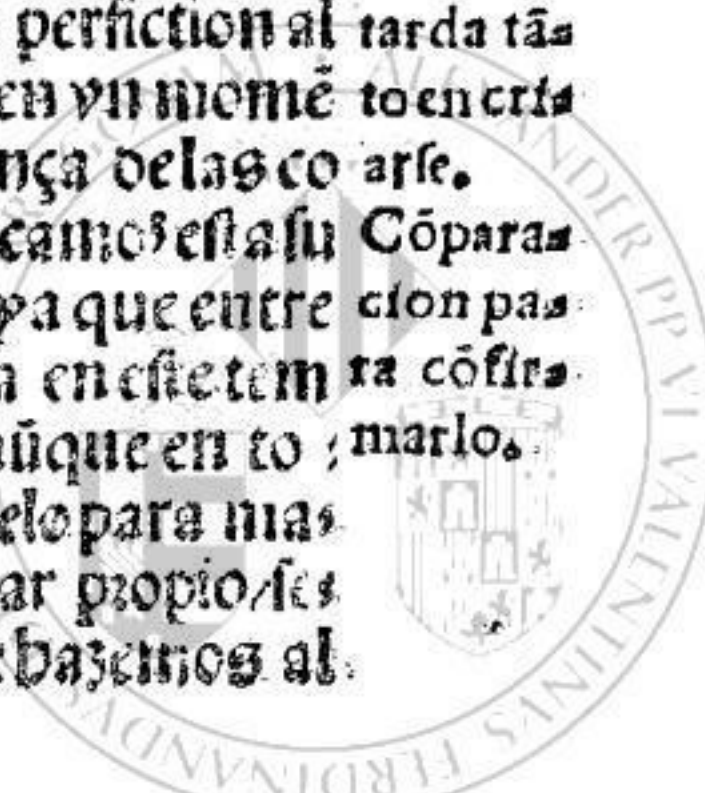 perfiction al
en vn momẽ
nça delas co
camos esta su
ya que entre
en este tem
ũque en to
elo para mas
ar propio/ses
hazemos al
tarda tã=
to en cri=
arse.
Cõpara=
cion pa=
ra cõfir=
marlo.
ALEXANDER PP VI VALENTINVS
FERDINANDVS